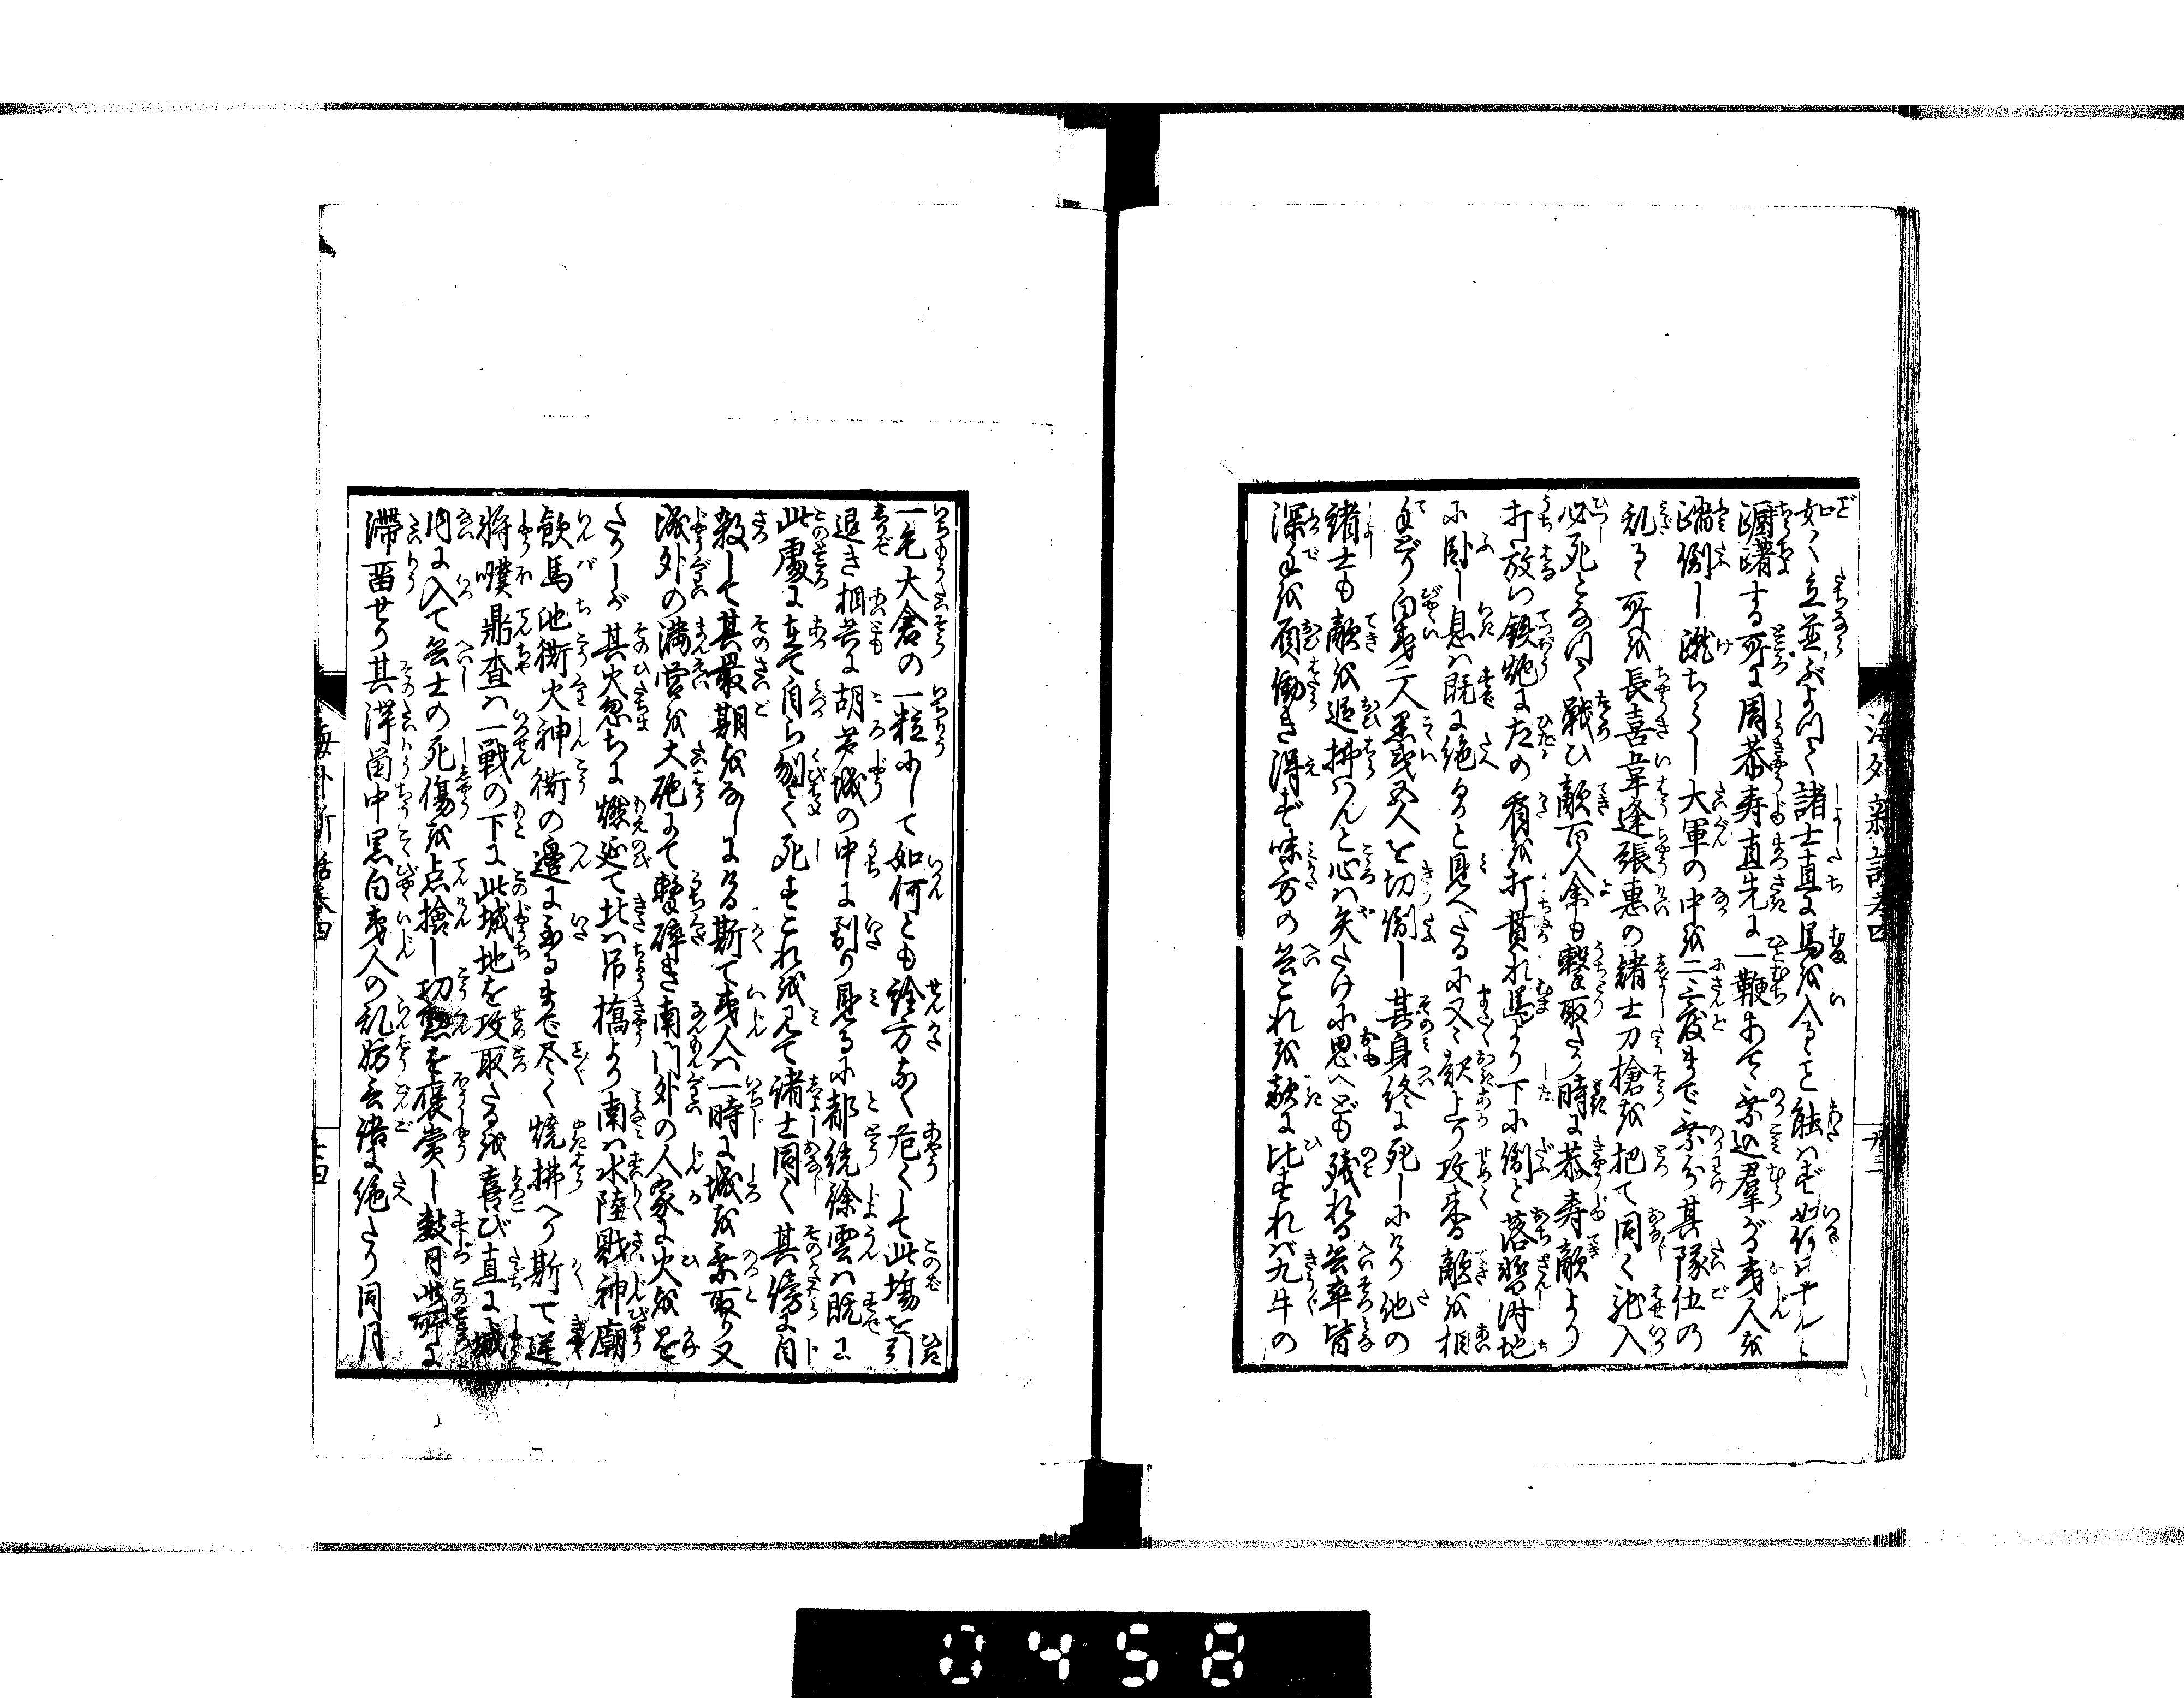 如く立並ぶよつて諸士直に馬を入るゝこと能はず如何せんと
躊躇する所に周恭寿直先に一鞭あて乗込群がる夷人を
蹴倒し蹴ちらし大軍の中を二三度まで乗分其隊伍の
乱るゝ所を長喜韋逢張惠の諸士刀槍を把て同く馳入
必死となつて戦ひ敵百人余も撃取たる時に恭寿敵より
打放つ銃炮に左の肩を打貫れ馬より下に倒と落暫時地
に臥し息は既に絶ると見へたるに又々飛上り攻来る敵を相
手どり白夷二人黒夷五人を切倒し其身終に死しにけり他の
諸士も敵を追拂はんと心は矢たけに思へども残れる兵卒皆
深手を負働き得ず味方の兵これを敵に比すれば九牛の
一毛大倉の一粒にして如何とも詮方なく危くして此場を引
退き相共に胡芦城の中に到り見るに都統徐雲は既に
此處に在て自ら刎て死すこれを見て諸士同く其傍に自
殺して其最期をなしにける斯て夷人は一時に城を乗取り又
城外の満営を大砲にて撃碎き南門外の人家に火を
たりしが其火忽ちに燃延て北は吊橋より南は水陸財神廟
飲馬池衝火神衝の邉に至るまで尽く焼拂へり斯て逆
将噗鼎査は一戦の下に此城地を攻取たるを喜び直に城
内に入て兵士の死傷を点撿し功勲を褒賞し数日此所に
滞畄せり其滞畄中黒白夷人の乱妨言語に絶たり同月
海外新話巻四
海外新話巻四